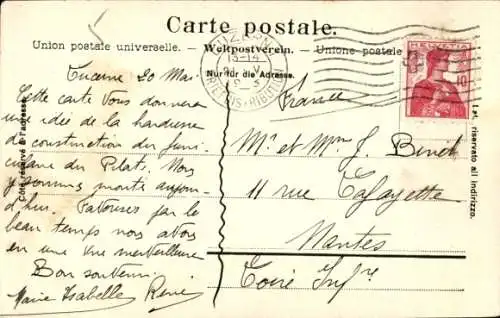 Carte postale.
Union postale universelle. – Weltpostverein. – Unione postale
Nur für die Adresse.
Côté réservé à l'adresse.
HELVETIA
10
France
Lucerne 20 Mai
Cette carte vous donnera
une idée de la hardiesse
de construction du funi-
culaire du Pilate. Nous
y sommes montés aujour-
d'hui. Favorisés par le
beau temps nous avons
eu une vue merveilleuse
Bon souvenir.
Marie Isabelle René
Mr et Mme J. Benoit
11 rue Lafayette
Nantes
Loire Infre
riservato all indirizzo.